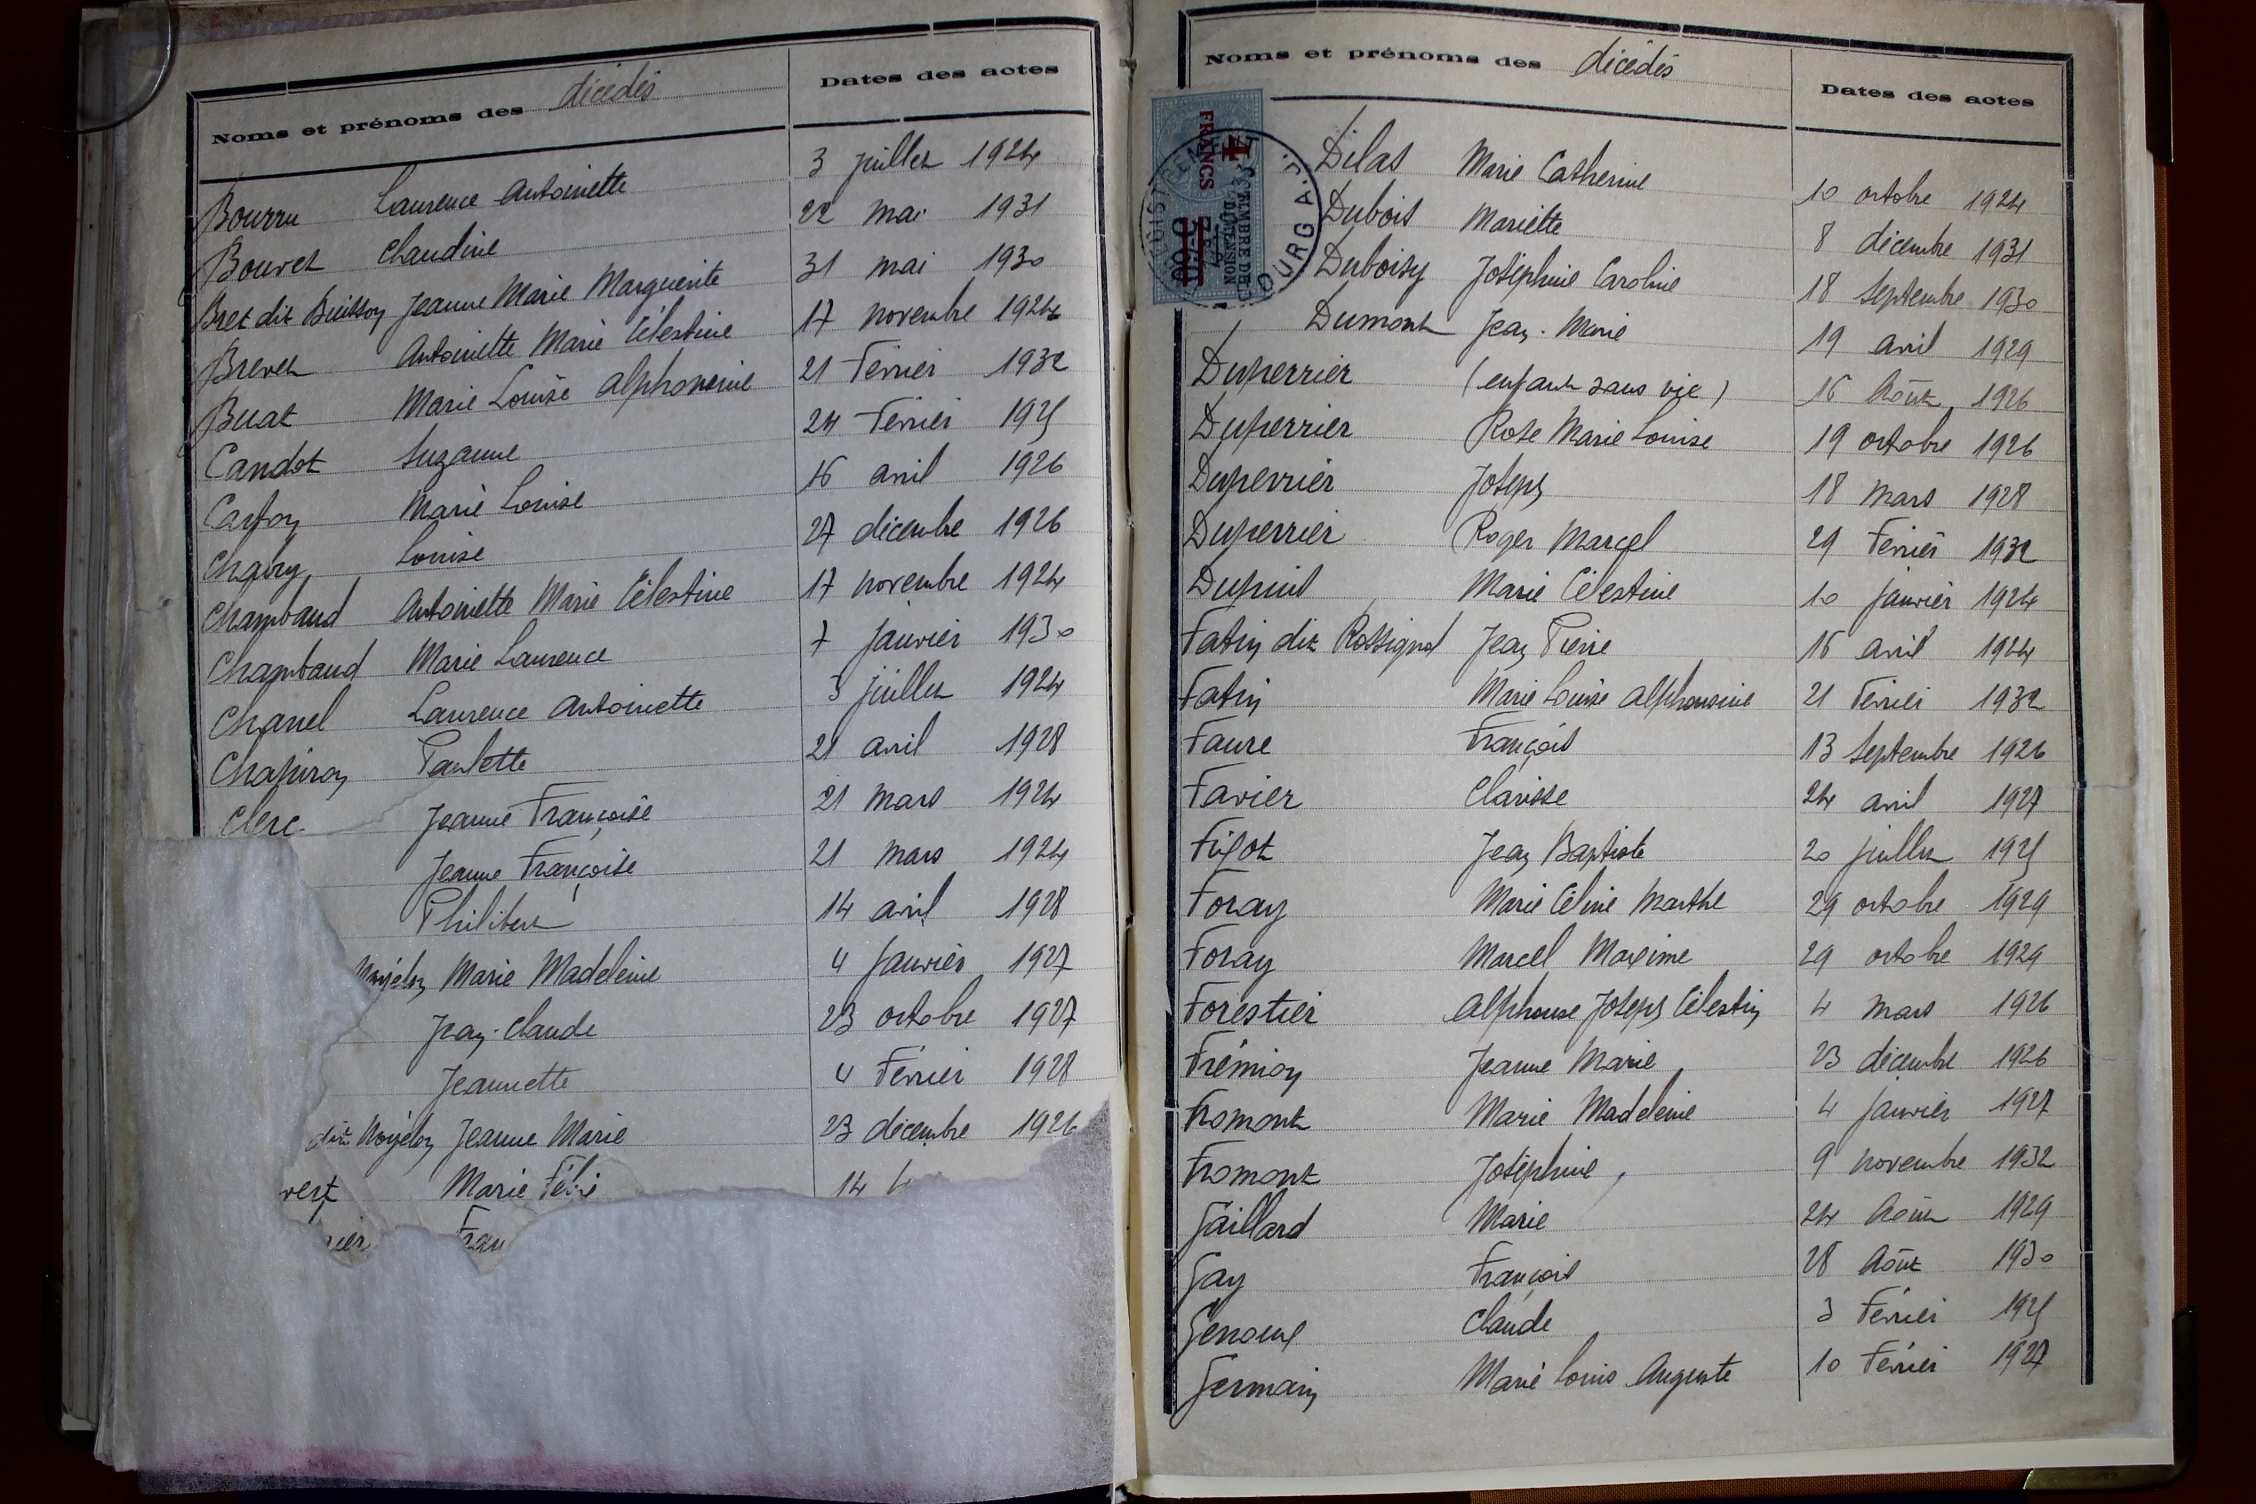 Noms et prénoms des décédés Dates des actes
Bourru Laurence Antoinette 3 juillet 1924
Bouvet Claudine 22 mai 1931
Bret dit Buisson Jeanne Marie Marguerite 31 mai 1930
Brevet Antoinette Marie Célestine 17 novembre 1924
Buat Marie Louise Alphonsine 21 Février 1932
Candot Suzanne 24 Février 1925
Carton Marie Louise 16 avril 1926
Chabry Louise 27 décembre 1926
Chambaud Antoinette Marie Célestine 17 novembre 1924
Chambaud Marie Laurence 7 janvier 1930
Chanel Laurence Antoinette 3 juillet 1924
Chapiron Paulette 21 avril 1928
Clerc Jeanne Françoise 21 mars 1924
Jeanne Françoise 21 mars 1924
Philibert 14 avril 1928
Noyelon Marie Madeleine 4 janvier 1927
Jean-Claude 23 octobre 1927
Jeannette 4 Février 1928
dit Noyelon Jeanne Marie 23 décembre 1926
vert Marie 14
Noms et prénoms des décédés Dates des actes
4 FRANCS
BOURG
Dilas Marie Catherine 10 octobre 1924
Dubois Mariette 8 décembre 1931
Duboisy Joséphine Caroline 18 septembre 1930
Dumont Jean-Marie 19 avril 1929
Duperrier (enfant sans vie) 16 Août 1926
Duperrier Rose Marie Louise 19 octobre 1926
Duperrier Joseph 18 mars 1928
Duperrier Roger Marcel 29 Février 1932
Dupuis Marie Célestine 10 janvier 1924
Fatin dit Rossignol Jean Pierre 16 avril 1924
Fatin Marie Louise Alphonsine 21 Février 1932
Faure François 13 septembre 1926
Favier Clarisse 24 avril 1927
Figot Jean Baptiste 20 juillet 1925
Foray Marie Céline Marthe 29 octobre 1929
Foray Marcel Maxime 29 octobre 1929
Forestier Alphonse Joseph Célestin 4 mars 1926
Frémion Jeanne Marie 23 décembre 1926
Fromont Marie Madeleine 4 janvier 1927
Fromont Joséphine 9 novembre 1932
Gaillard Marie 24 Août 1929
Gay François 28 Août 1930
Genoux Claude 3 Février 1925
Germain Marie Louis Auguste 10 Février 1927